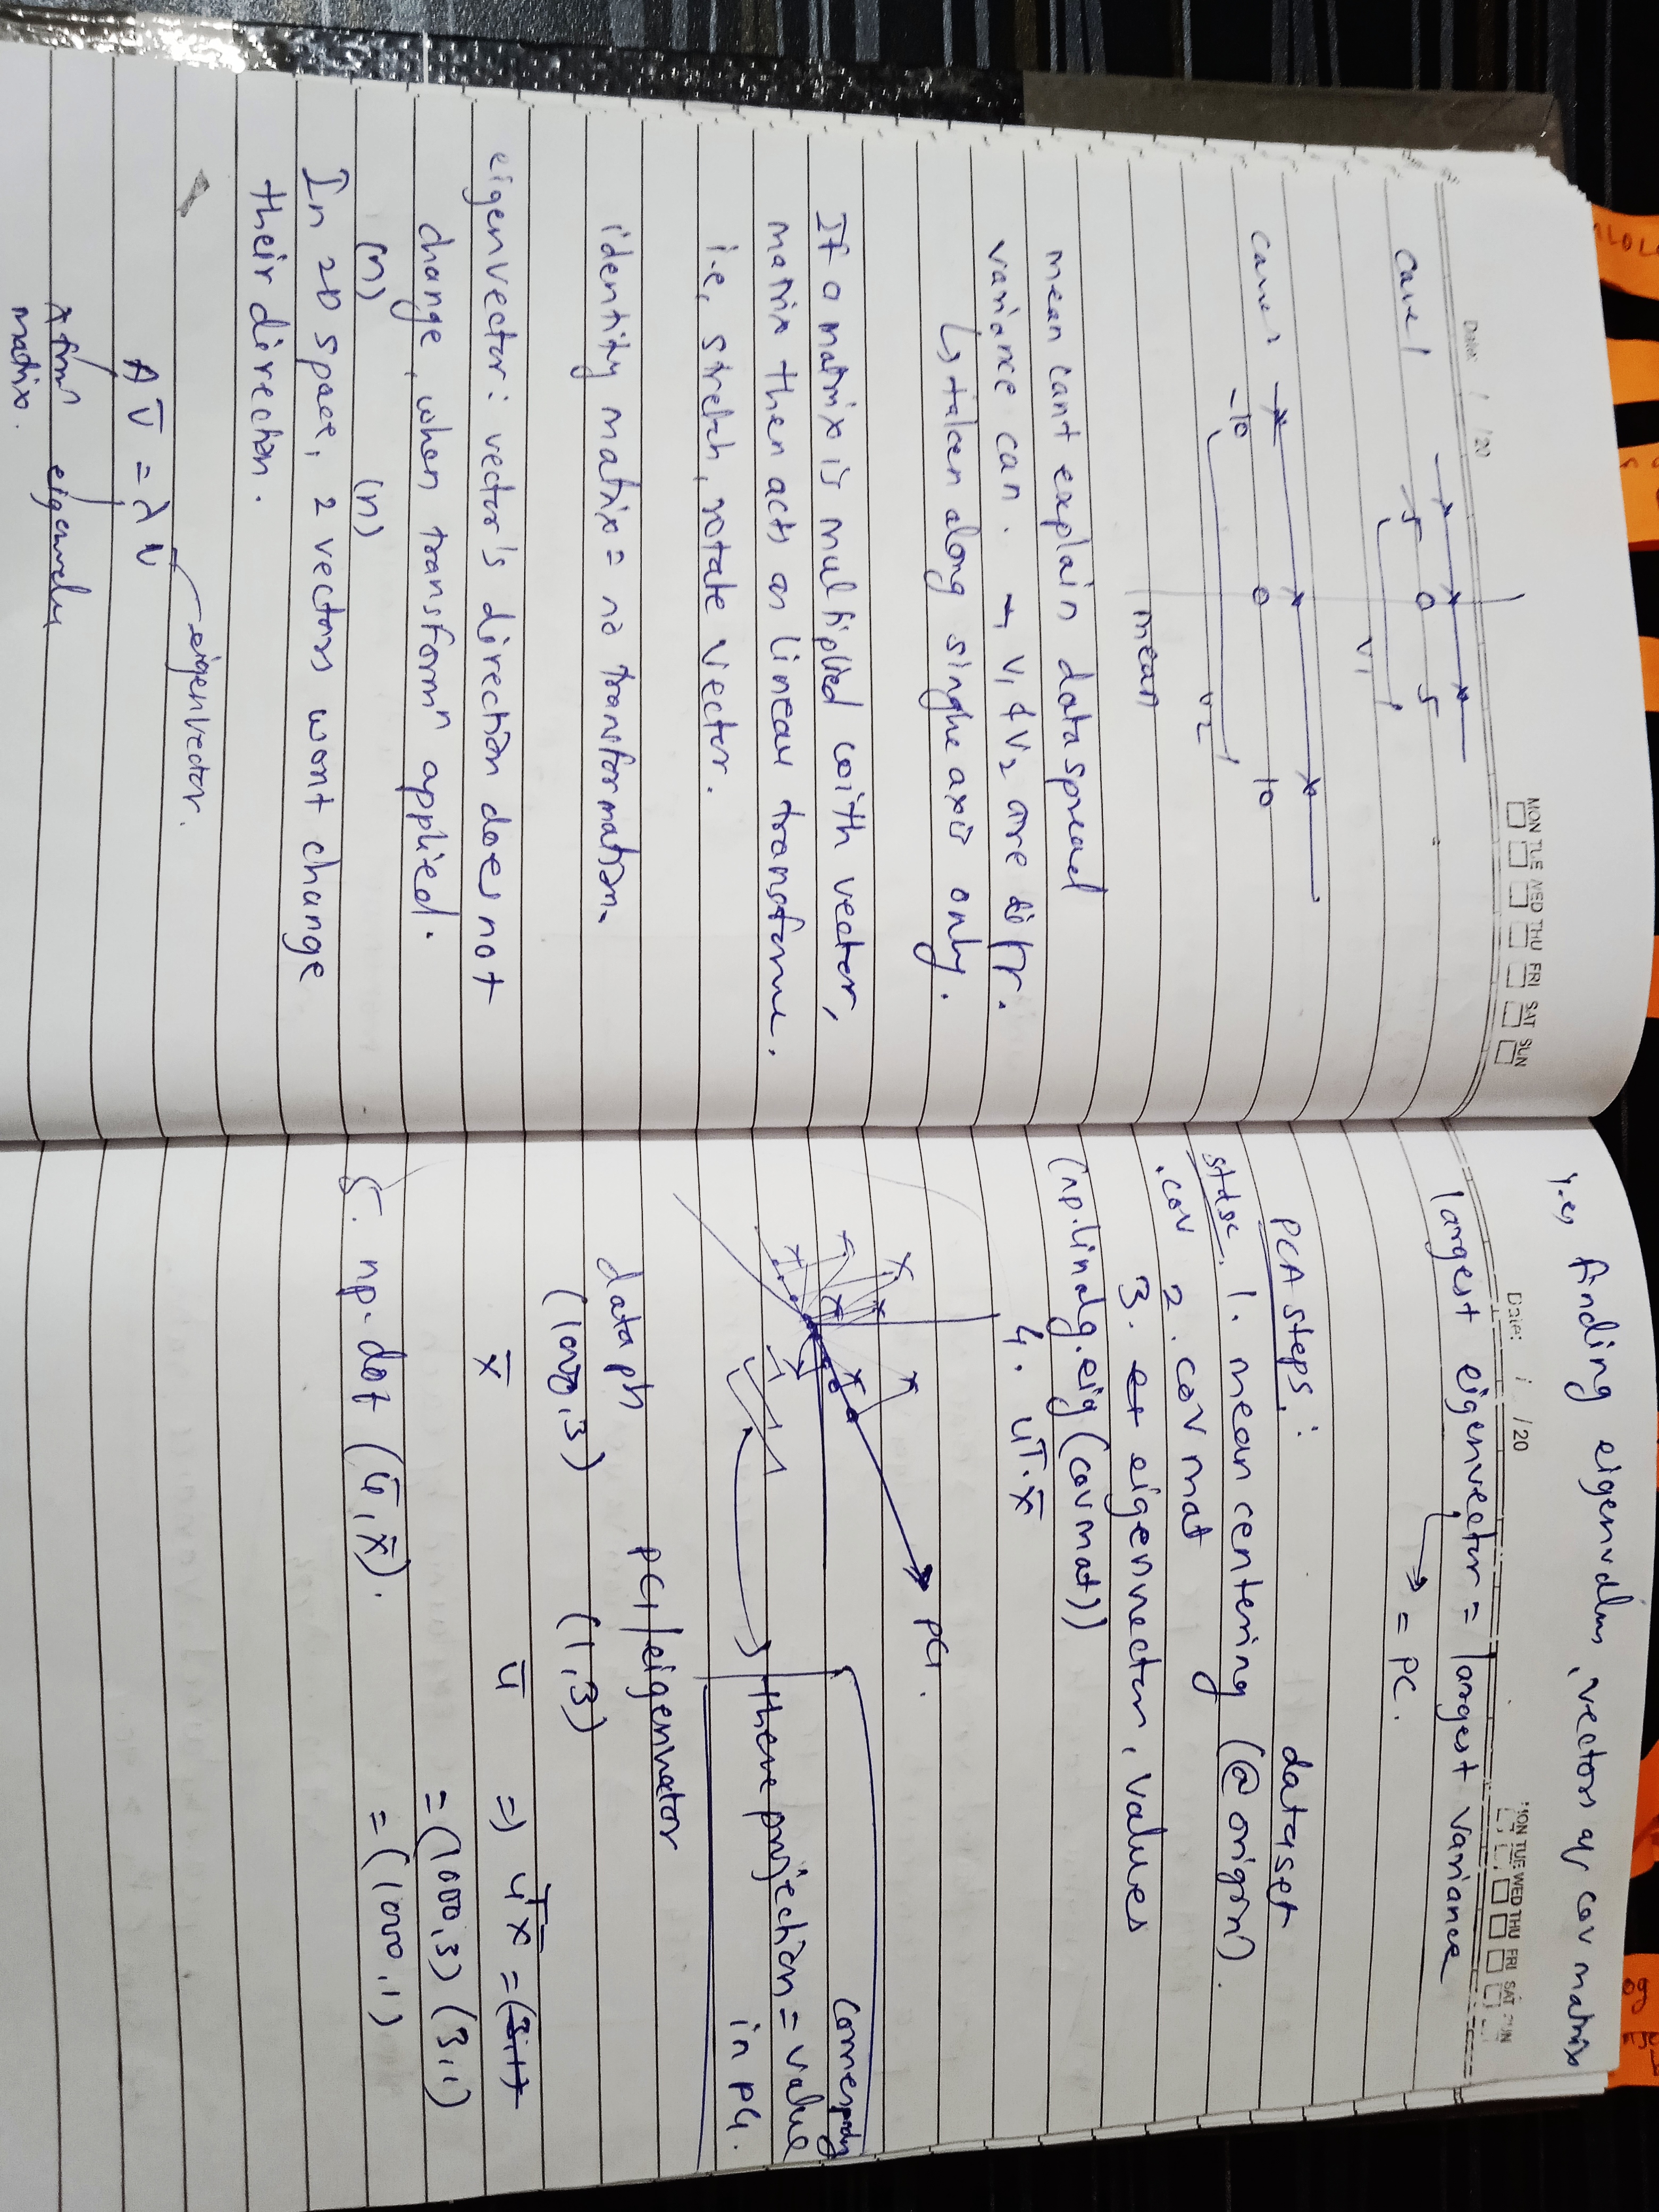 Date: / /20
MON TUE WED THU FRI SAT SUN
case 1
-5 0 5
V1
case 2
-10 0 10
V2
mean
mean cant explain data spread
variance can. → V1 & V2 are diff.
↳ taken along single axis only.
If a matrix is multiplied with vector,
matrix then acts as linear transforme.
i.e, stretch, rotate vector.
identity matrix = no transformation.
eigenvector: vector's direction does not
change, when transformⁿ applied.
(n) (n)
In 2D space, 2 vectors wont change
their direction.
eigenvector.
A v̄ = λ v
eigenvalu
matrix.
i.e, finding eigenvalues, vectors of cov matrix
Date: / /20
MON TUE WED THU FRI SAT SUN
largest eigenvector = largest variance
→ = PC.
PCA steps: dataset
stdsc. 1. mean centering (@ origin).
.cov 2. cov mat
3. eigenvector, values
(np.linalg.eig(covmat))
4. uᵀ.x̄
PC1.
corresponding
there projection = value
in PC1.
data ph PC1/eigenvector
(1000,3) (1,3)
x̄ ū ⇒ uᵀx = (3,1)
= (1000,3) (3,1)
= (1000,1)
5. np.dot (ū, x̄).